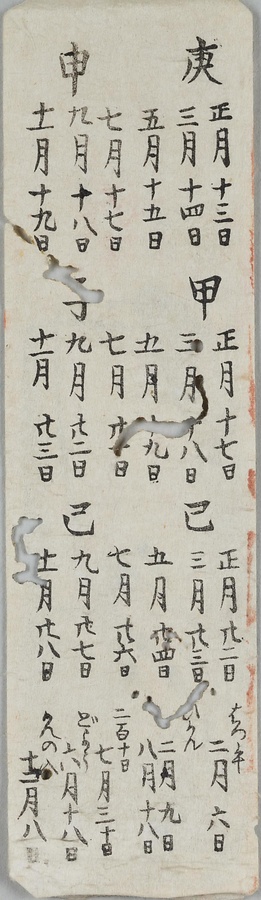 庚申
正月十三日
三月十四日
五月十五日
七月十七日
九月十八日
十一月十九日
甲子
正月十七日
三月十八日
五月十九日
七月廿一日
九月廿二日
十一月廿三日
己巳
正月廿二日
三月廿三日
五月廿四日
七月廿六日
九月廿七日
十一月廿八日
はつ午
二月六日
ひがん
二月九日
八月十八日
二百十日
七月三十日
どよう
六月十八日
十二月八日